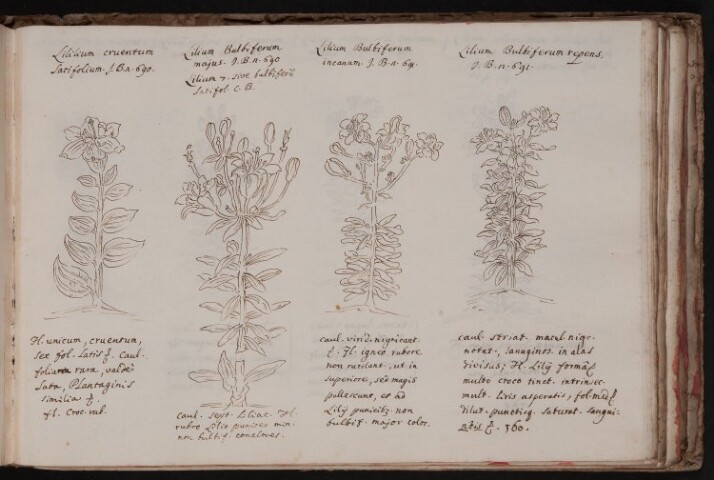 Lilium cruentum
latifolium. J.B. n. 690.
Lilium Bulbiferum
majus. J.B. n. 690
Lilium 7. sive bulbiferū
latifol C.B.
Lilium Bulbiferum
incanum. J.B. n. 691.
Lilium Bulbiferum repens.
J.B. n. 691.
Fl. unicum, cruentum,
sex fol. latis Caul.
foliaτa rara, valde
lata, Plantaginis
similia
fl. Croc. rub.
caul. sept. Liliac. Fl.
rubro Lilio puniceo min.
non bulbif. concolores.
caul. virid. nigricant
Fl. igneo rubore
non rutilant, ut in
superiore, sed magis
pallescunt, et ad
Lilij puniceū non
bulbif. major color.
caul. striat. macul. nigr.
notat. lanuginos. in alas
divisus; Fl. Lilij formā
multo croco tinct. intrinsec.
mult. liris asperatis, fol. med.
dilut. punctisq. saturat. sangui-
360.